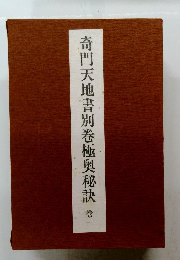 奇門天地書別巻極奥秘訣 巻一